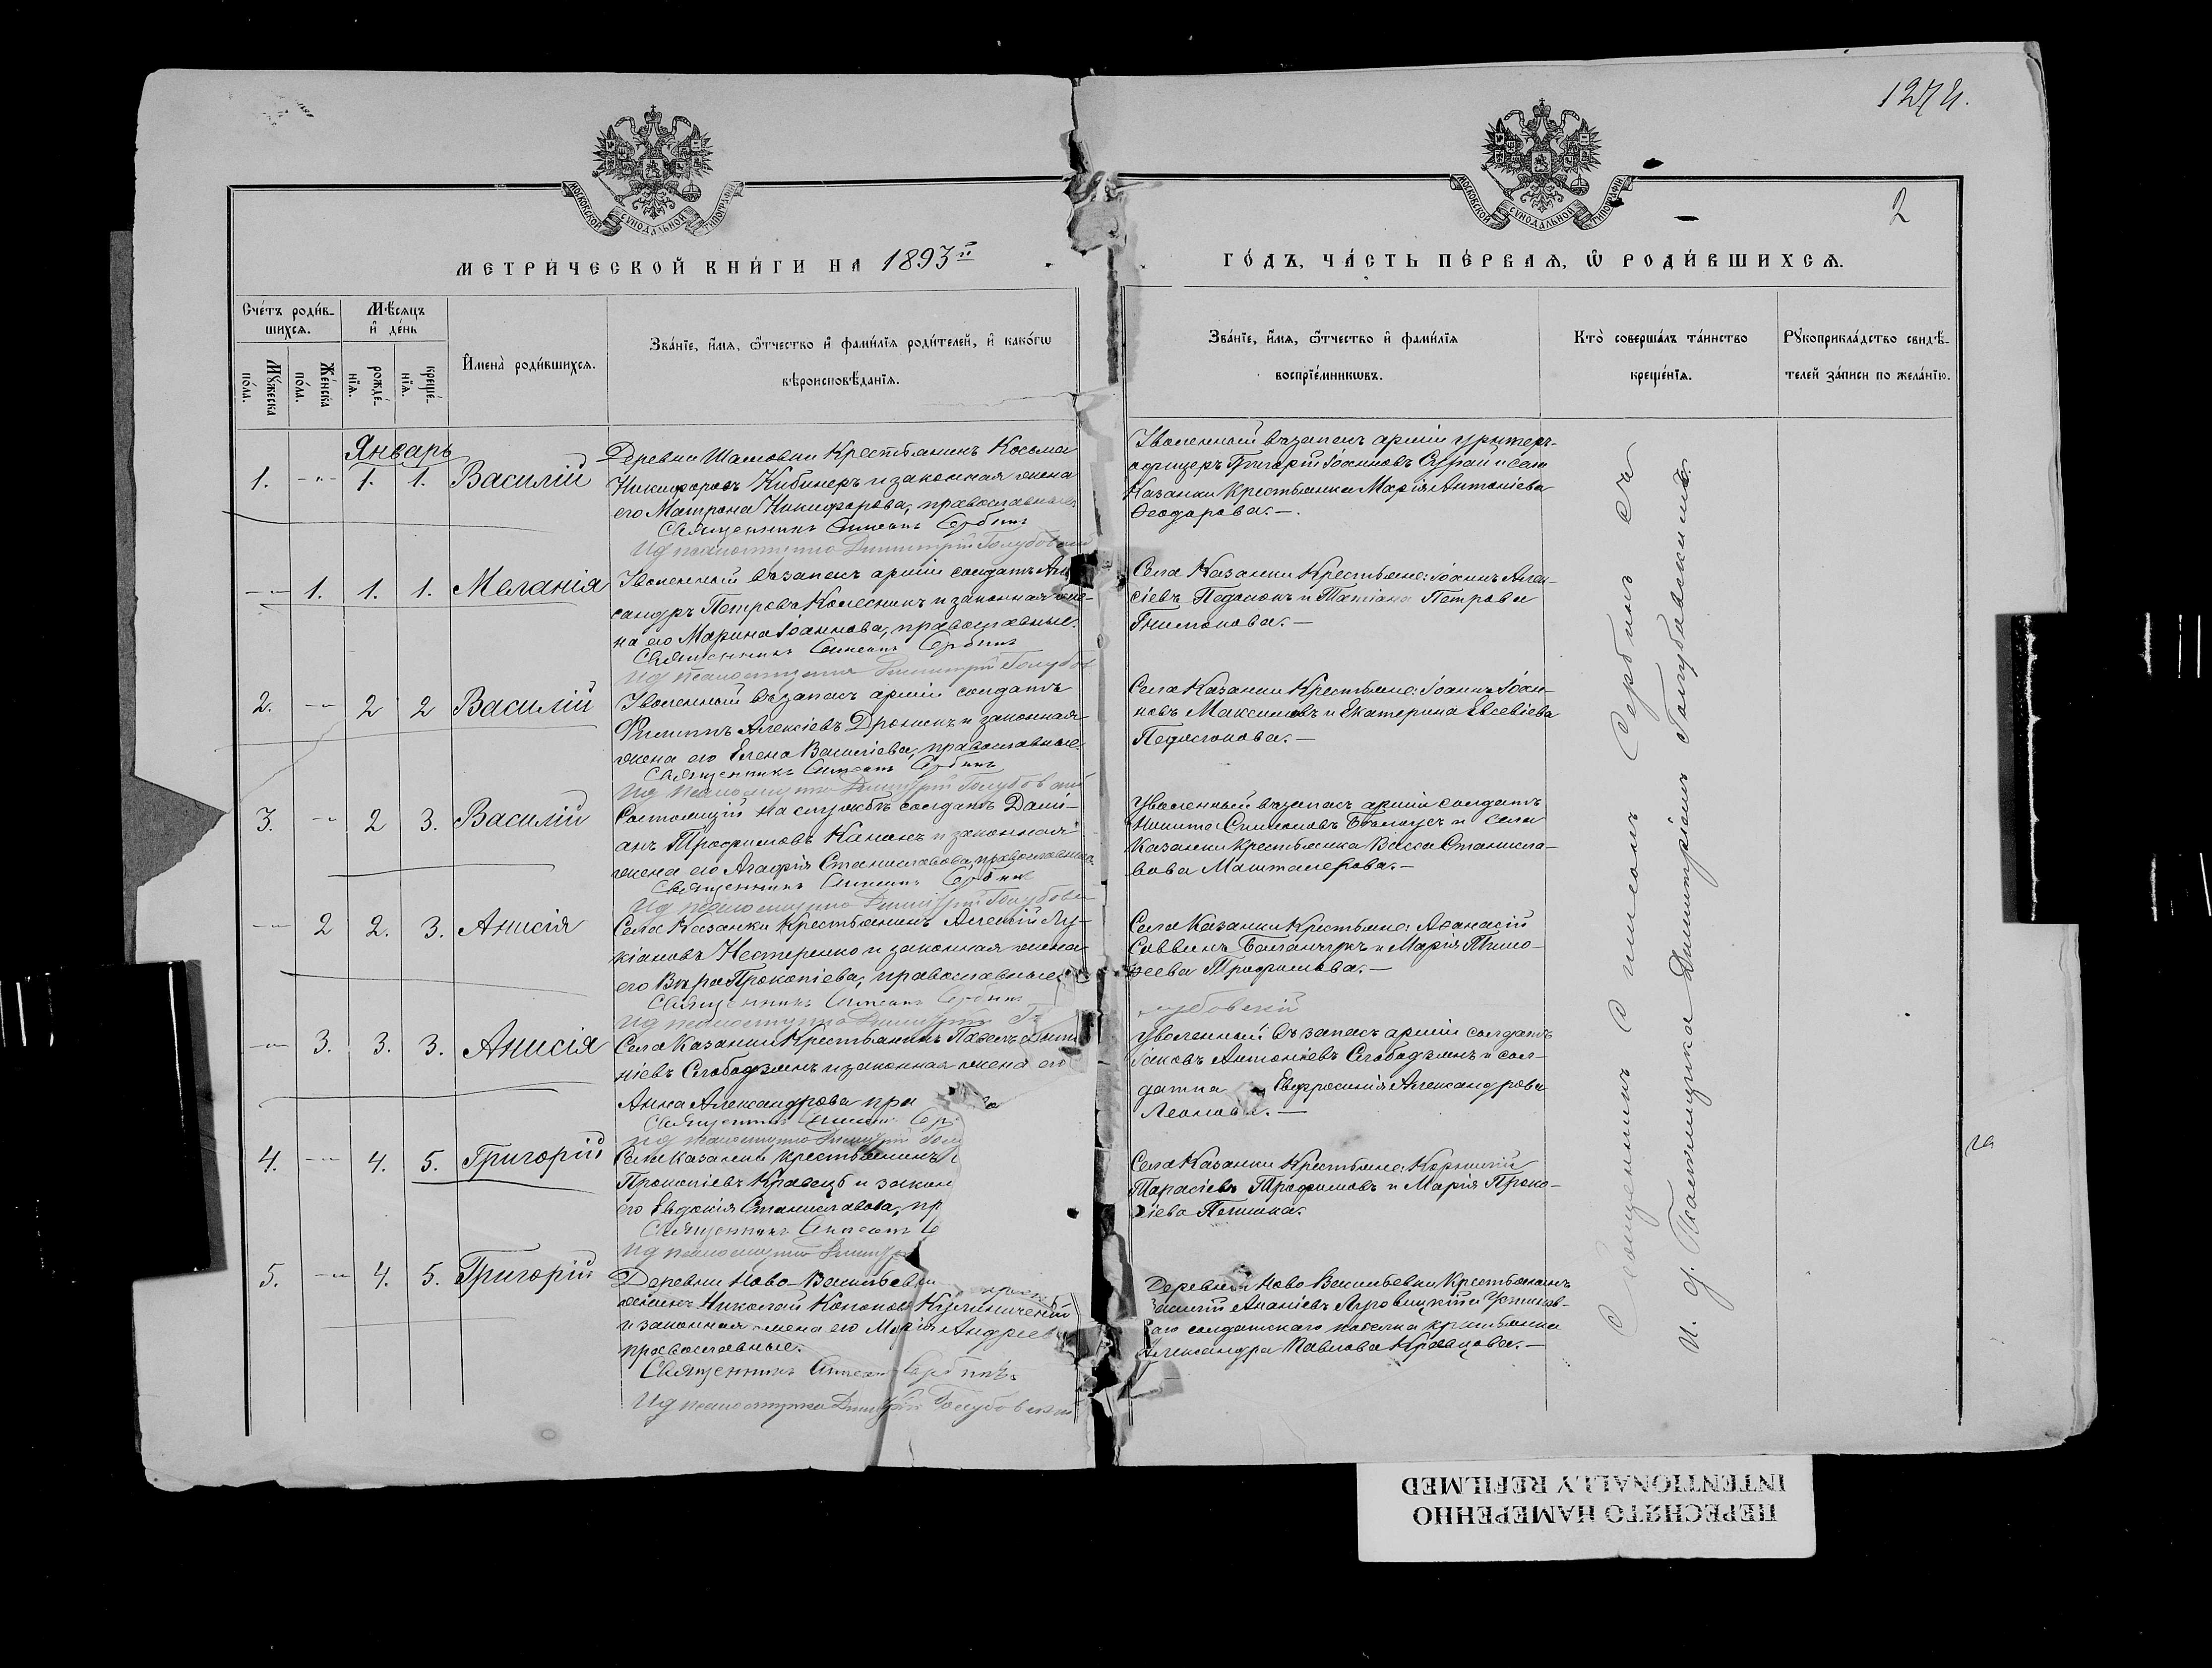 1274.
МОСКОВСКОЙ СѴНОДАЛЬНОЙ ТИПОГРАФІИ
МОСКОВСКОЙ СѴНОДАЛЬНОЙ ТИПОГРАФІИ
2
МЕТРИ́ЧЕСКОЙ КНИ́ГИ НА 1893й
ГО́ДЪ, ЧА́СТЬ ПЕ́РВАѦ, Ѡ҆ РОДИ́ВШИХСѦ.
Сче́тъ роди́в-
шихсѧ.
Мꙋ́жеска по́ла.
Же́нска по́ла.
Мѣ́сѧцъ
и҆ де́нь
рожде́-
нїѧ.
креще́-
нїѧ.
И҆мена̀ роди́вшихсѧ.
Зва́нїе, и҆́мѧ, ѻ҆́тчество и҆ фами́лїѧ роди́телей, и҆ како́гѡ
вѣроисповѣ́данїѧ.
Зва́нїе, и҆́мѧ, ѻ҆́тчество и҆ фами́лїѧ
воспрїе́мникѡвъ.
Кто̀ соверша́лъ та́инство
креще́нїѧ.
Рꙋкоприкла́дство свидѣ́-
телей за́писи по жела́нїю.
Январь
1. -"- 1. 1. Василій
Деревни Шамовки Крестьянинъ Косьма
Никифоровъ Кибинеръ и законная жена
его Матрона Никифорова, православные.
Священникъ Симеонъ Сербинъ
Ид псаломщика Димитрій Голубовскій
Уволенный въ запасъ арміи унтеръ-
офицеръ Григорій Іоанновъ и села
Казанки Крестьянка Марія Антоніева
Ѳеодорова.—
-"- 1. 1. 1. Меланія
Уволенный въ запасъ арміи солдатъ Але
сандръ Петровъ Колесникъ и законная же-
на его Марина Іоаннова, православные.
Священникъ Симеонъ Сербинъ
Ид псаломщика Димитрій Голубов
Села Казанки Крестьяне: Іоаннъ Алек-
сіевъ и Татіана Петрова
2. -"- 2 2 Василій
Уволенный въ запасъ арміи солдатъ
Филиппъ Алексіевъ и законная
жена его Елена Василіева, православные
Священникъ Симеонъ Сербинъ
Ид псаломщика Димитрій Голубовскій
Села Казанки Крестьяне: Іоаннъ Іоан-
новъ Максимовъ и Екатерина Евсевіева
3. -"- 2 3. Василій
Состоящій на службѣ солдатъ Даміа-
анъ Трофимовъ и законная
жена его Агафія Станиславова, православные
Священникъ Симеонъ Сербинъ
Ид псаломщика Димитрій Голубовск
Уволенный въ запасъ арміи солдатъ
Никита Симеоновъ Бѣлоусъ и села
Казанки крестьянка Васса Станисла-
вова Машталерова.—
-"- 2 2. 3. Анисія
Села Казанки Крестьянинъ Алексій Лу-
кіановъ Нестеренко и законная жена
его Вѣра Прокопіева, православные.
Священникъ Симеонъ Сербинъ
Ид псаломщика Димитрій Го
лубовскій
Села Казанки Крестьяне: Аѳанасій
Саввинъ и Марія Тимо-
ѳеева Трофимова.—
-"- 3. 3. 3. Анисія
Села Казанки Крестьянинъ Павелъ Анто
ніевъ Слободзянъ и законная жена его
Анна Александрова пра
Священникъ Симеонъ Сер
Ид псаломщика Димитрій Голу
Уволенный въ запасъ арміи солдатъ
Іаковъ Антоніевъ Слободзянъ и сол-
датка Евфросинія Александрова
Леонова.—
4. -"- 4. 5. Григорій
Села Казанки крестьянинъ
Прокопіевъ Кравецъ и закон
его Евдокія Станиславова, пр
Священникъ Симеонъ С
Ид псаломщика Димитр
Села Казанки Крестьяне: Корнилій
Тарасіевъ Трофимовъ и Марія Проко-
піева
5. -"- 4. 5. Григорій
Деревни Ново-Васильевки крест
янинъ Николай Кононовъ
и законная жена его Марія Андреев
православные.
Священникъ Симеонъ Сербинъ.
Ид псаломщика Димитрій Голубовскій
Деревни Ново Васильевки Крестьянинъ
Ананіевъ и
аго солдатскаго поселка крестьянка
Александра Павлова Кравцова.—
Священникъ Симеонъ Сербинъ съ
и. д. Псаломщика Димитріемъ Голубовскимъ.
ПЕРЕСНЯТО НАМЕРЕННО
INTENTIONALLY REFILMED